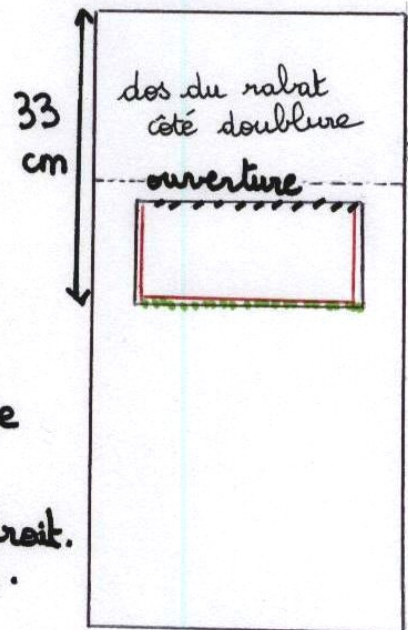 33
cm
dos du rabat
côté doublure
ouverture
e
roit.
.